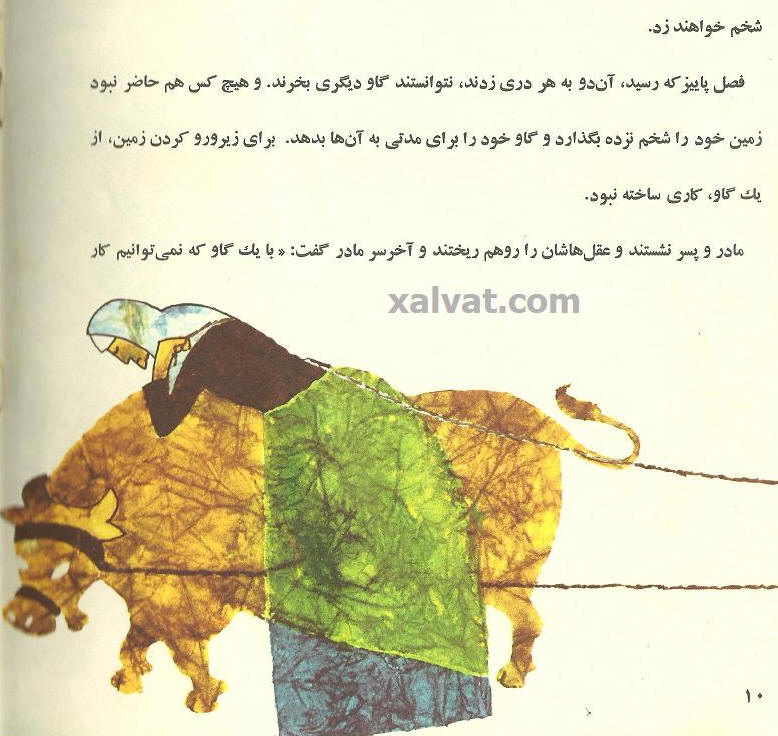 شخم خواهند زد.
فصل پاییز که رسید، آن‌دو به هر دری زدند، نتوانستند گاو دیگری بخرند. و هیچ کس هم حاضر نبود
زمین خود را شخم نزده بگذارد و گاو خود را برای مدتی به آن‌ها بدهد. برای زیرورو کردن زمین، از
یك گاو، کاری ساخته نبود.
مادر و پسر نشستند و عقل‌هاشان را روهم ریختند و آخرسر مادر گفت: « با یك گاو که نمی‌توانیم کار
xalvat.com
۱۰